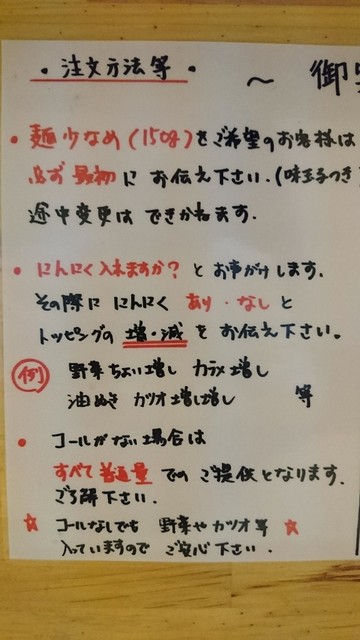 ・注文方法等・ 〜 御
・麺少なめ(150g)をご希望のお客様は
必ず最初にお伝え下さい.(味玉子つき
途中変更はできかねます.
・にんにく入れますか？とお声がけします.
その際ににんにく あり・なしと
トッピングの増・減をお伝え下さい。
例 野菜ちょい増し カラメ増し
油ぬき カツオ増し増し 等
・コールがない場合は
すべて普通量でのご提供となります.
ご了解下さい.
☆コールなしでも 野菜やカツオ等☆
入っていますので ご安心下さい.